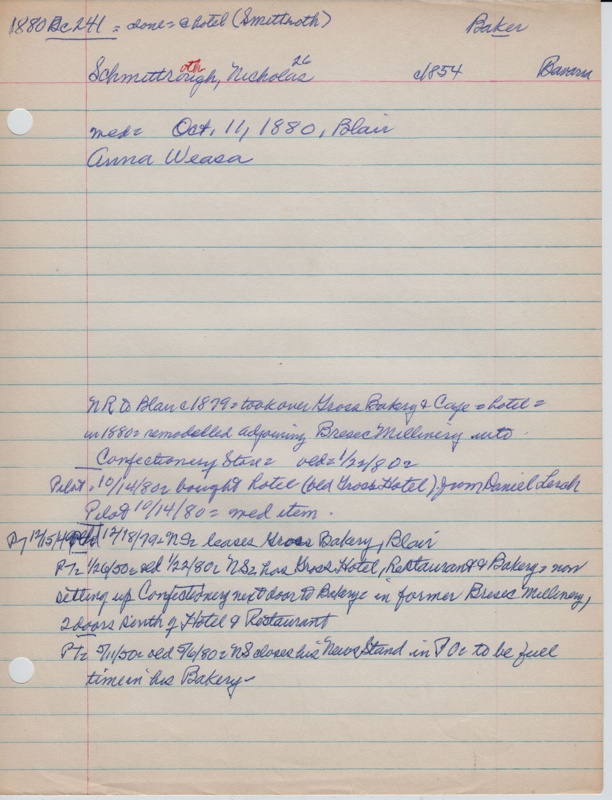 1880 Bc 241 = done = @ hotel (Smittroth)
Baker
Schmittrough, Nicholas 26 c1854 Bavaria
oth
med = Oct. 11, 1880, Blair
Anna Weasa
NR to Blair c1879 = took over Gross Bakery & Cafe = hotel =
in 1880 = remodelled adjoining Bresee Millinery into
Confectionery Store = oed = 1/22/80
Pilot = 10/14/80 = bought hotel (old Gross Hotel) from Daniel Lesah
Pilot 10/14/80 = med item.
12/18/79 = NS = leases Gross Bakery, Blair
PT = 1/26/50 = oed 1/22/80 = NS = has Gross Hotel, Restaurant & Bakery = now
setting up Confectionery next door to Bakery in former Bresee Millinery,
2 doors south of Hotel & Restaurant
PT = oed = NS closes his News Stand in PO = to be full
time in his Bakery -